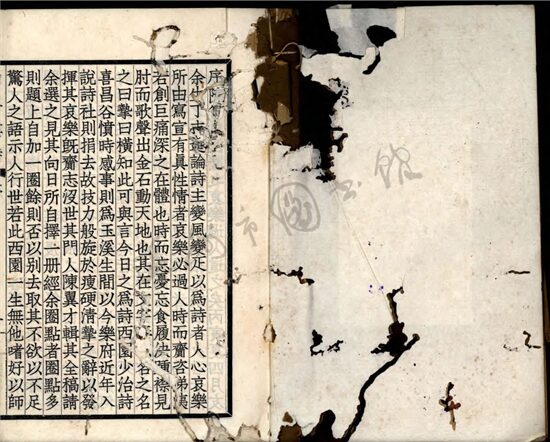 余生丁
論詩主變風變疋以爲詩者人心哀樂
所由寫宣有真性情者哀樂必過人時而齎咨涕洟
若創巨痛深之在體也時而忘憂忘食履
肘而歌聲出金石動天地也其在
名之名
之曰摯曰橫知此可與言今日之爲詩西園少治詩
喜昌谷憤時感事則爲玉溪生間以今樂府近年入
說詩社則捐去故技力般旋於瘦硬淸摯之辭以發
揮其哀樂旣齎志沒世其門人陳翼才輯其全稿請
余選之見其向日所自擇一册經余圈點者圈點多
則題上自加一圈餘則否以別去取其不欲以不足
驚人之語示人行世若此西園一生無他嗜好以師